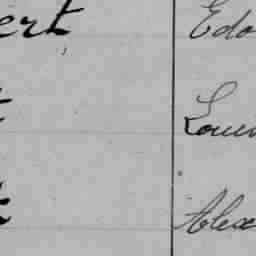 ert Edo
t Loui
t Alex